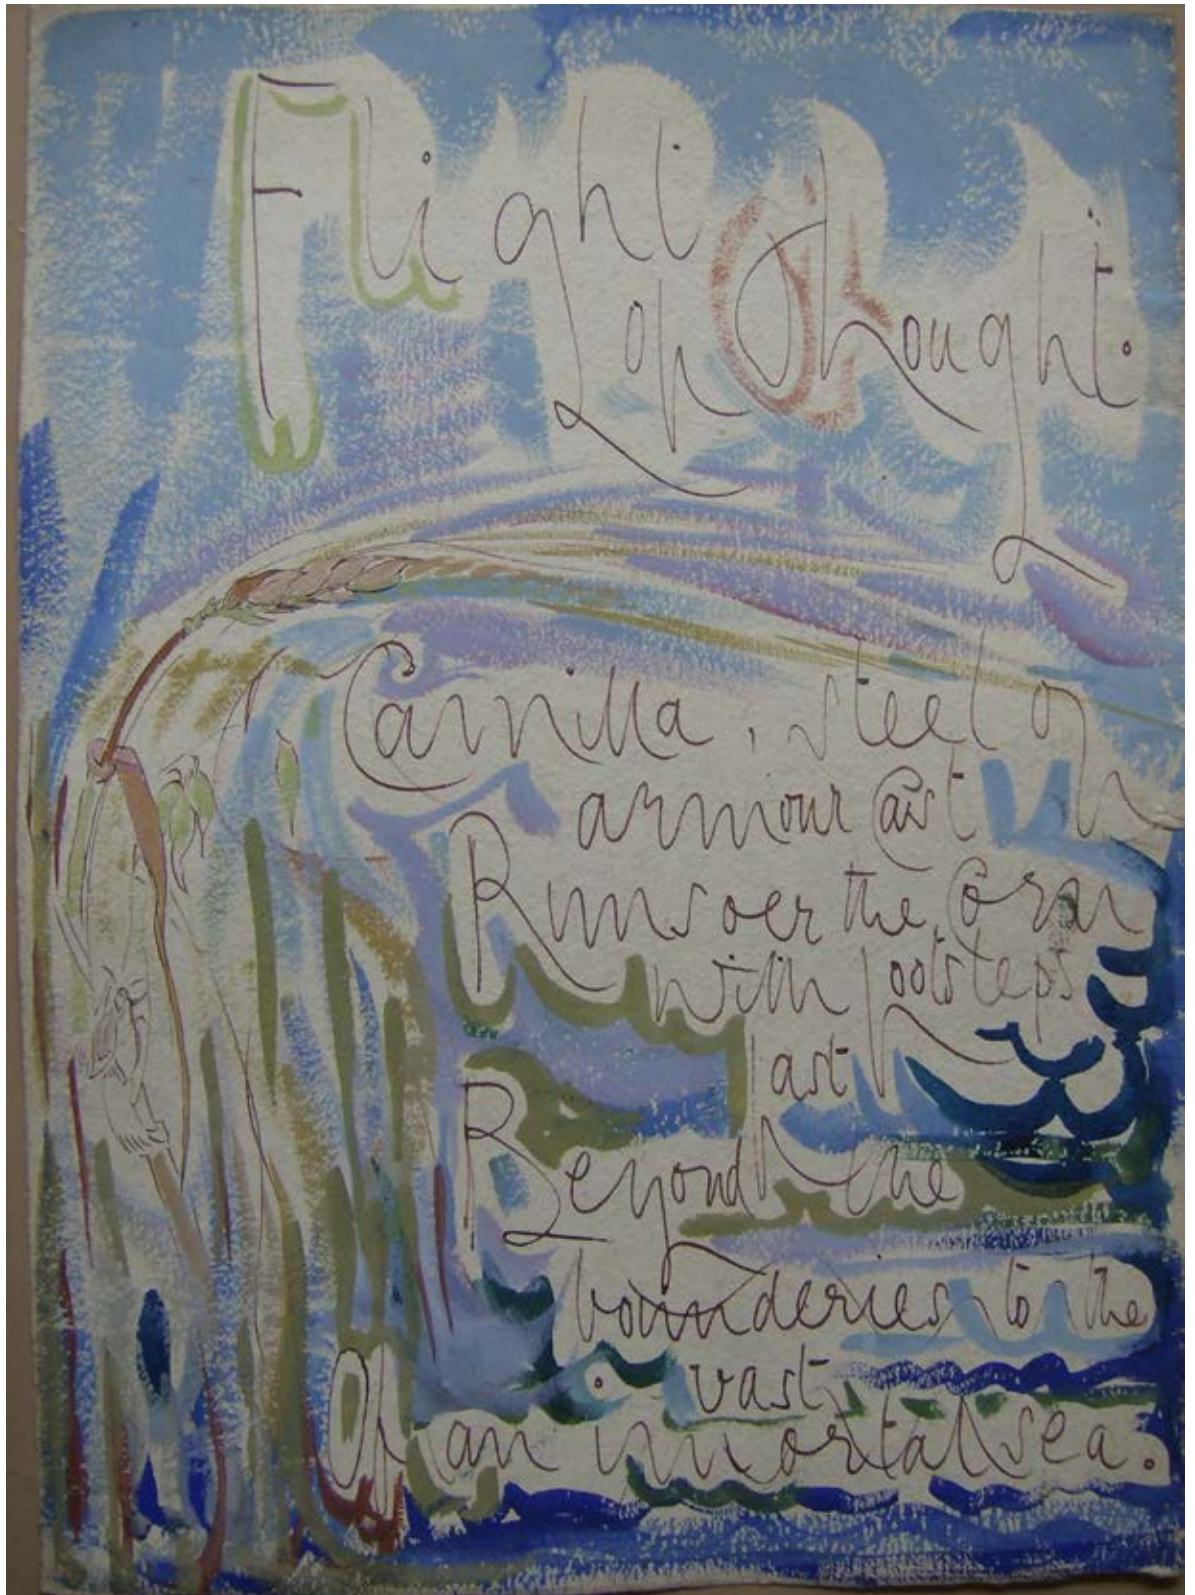 Flight
of Thought.
Camilla, steel of
armour Cast
Runs oer the Corn
with footsteps
fast
Beyond the
bounderies to the
vast
Of an immortal sea.